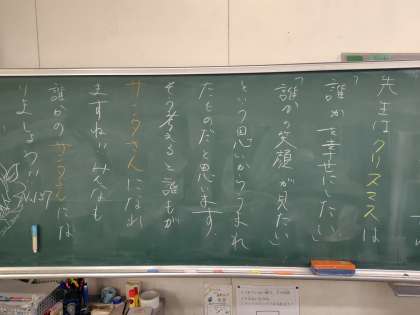 先生はクリスマスは
「誰かを幸せにしたい」
「誰かの笑顔が見たい」
という思いからうまれ
たものだと思います。
そう考えると誰もが
サンタさんになれ
ますね。みなも
誰かのサンタさんにな
りましょう!!